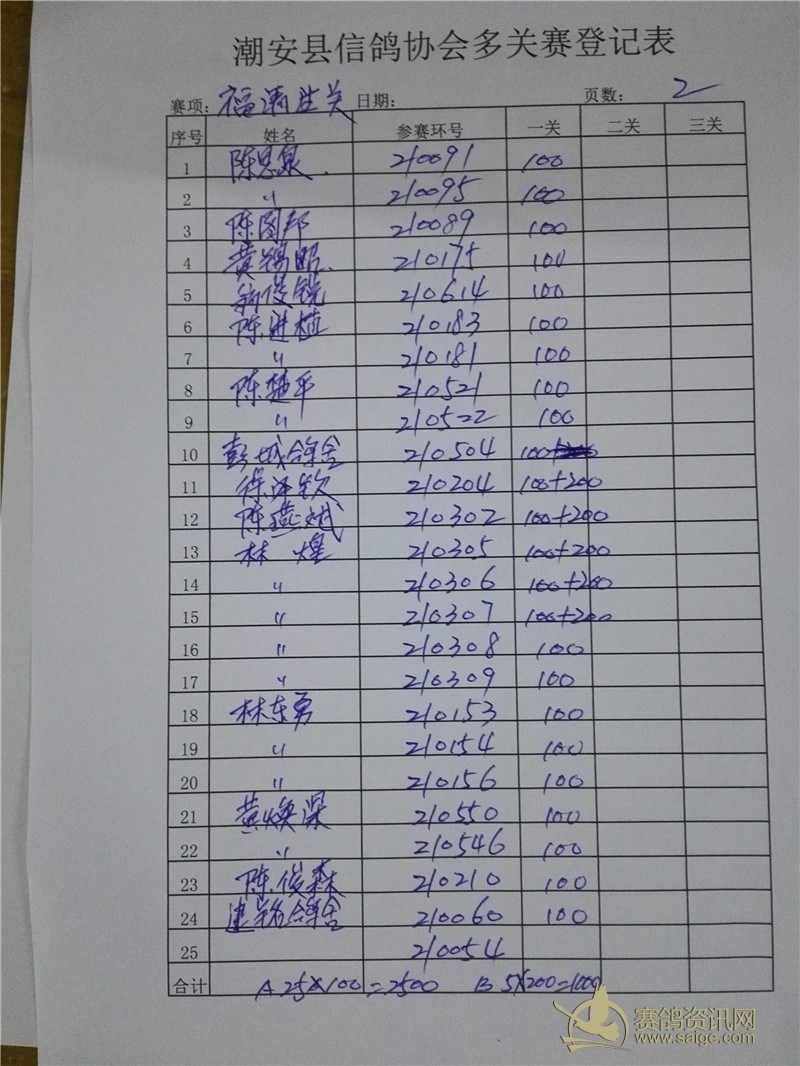 潮安县信鸽协会多关赛登记表
赛项: 福清 关 日期: 页数: 2
序号 姓名 参赛环号 一关 二关 三关
1 陈思泉 210091 100
2 〃 210095 100
3 陈图邦 210089 100
4 黄锡昭 210175 100
5 210614 100
6 陈进植 210183 100
7 〃 210181 100
8 陈楚平 210521 100
9 〃 210522 100
10 彭城鸽舍 210504 100
11 徐泽钦 210204 100+200
12 陈燕斌 210302 100+200
13 林煌 210305 100+200
14 〃 210306 100+200
15 〃 210307 100+200
16 〃 210308 100
17 〃 210309 100
18 林东勇 210153 100
19 〃 210154 100
20 〃 210156 100
21 黄焕深 210550 100
22 〃 210546 100
23 陈俊森 210210 100
24 建铭鸽舍 210060 100
25 210054
合计 A 25×100=2500 B 5×200=1000
赛鸽资讯网
www.saige.com